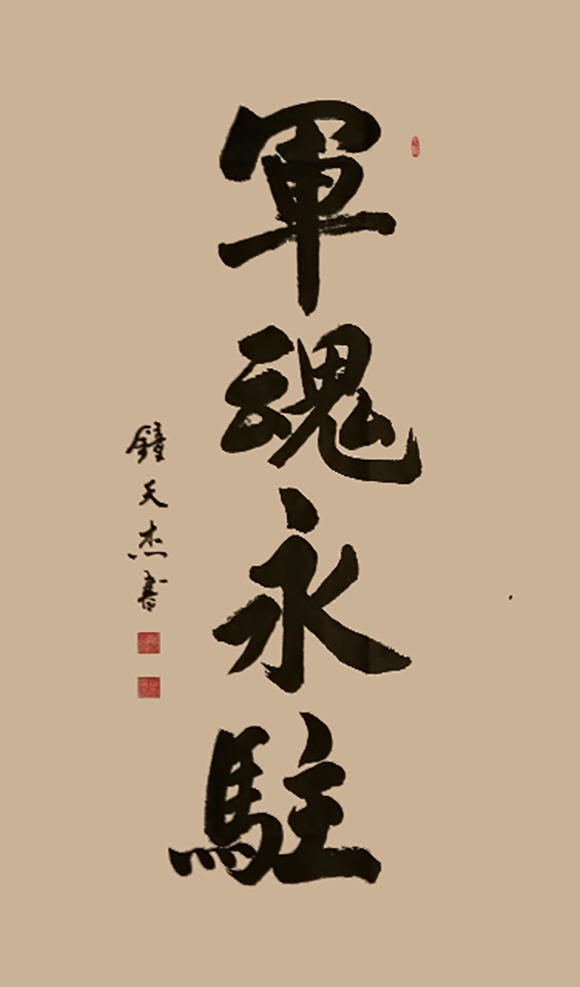 軍魂永駐
鐘天杰書